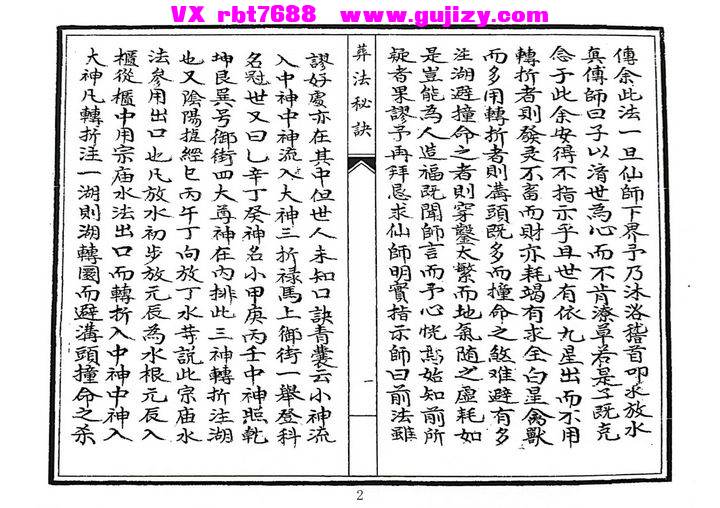 VX rbt7688 www.gujizy.com
傳余此法一旦仙師下界予乃沐浴稽首叩求放水
真傳師曰子以濟世為心而不肯潦草若是子既克
念于此余安得不指示乎且世有依九星出而不用
轉折者則發灵不畜而財亦耗竭有求全白星禽獸
而多用轉折者則溝頭既多而撞命之煞難避有多
注湖避撞命之者則穿鑿太繁而地氣随之虛耗如
是豈能為人造福既聞師言而予心恍然始知前所
疑者果謬予再拜恳求仙師明實指示師曰前法雖
葬法秘訣
一
謬好處亦在其中但世人未知口訣青囊云小神流
入中神中神流入大神三折禄馬上御街一舉登科
名冠世又曰乙辛丁癸神名小甲庚丙壬中神照乾
坤艮巽号御街四大尊神在內排此三神轉折注湖
也又陰陽提經乜丙午丁向放丁水䒭説此宗庙水
法參用出口也凡放水初步放元辰為水根元辰入
櫃從櫃中用宗庙水法出口而轉折入中神中神入
大神凡轉折注一湖則湖轉圜而避溝頭撞命之杀
2